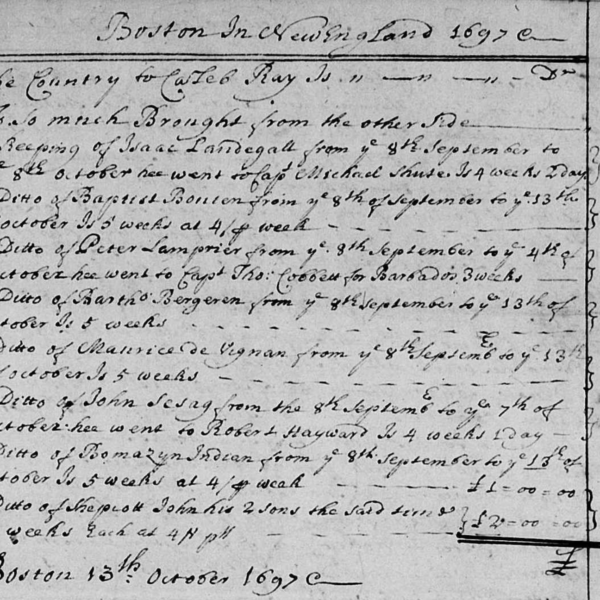 Boston In NewEngland 1697
he Country to Caleb Ray Is " — " — " — Dr
so much Brought from the other side
Keeping of Isaac Landegall from ye 8th September to
8th October hee went to Capt Michael Shute Is 4 weeks 1 day
Ditto of Baptist Bouten from ye 8th of September to ye 13th
october Is 5 weeks at 4/ week
Ditto of Peter Lamprier from ye 8th September to ye 4th of
ctober hee went to Capt Tho: Cobbett for Barbados 3 weeks
Ditto of Bartho: Bergeren from ye 8th September to ye 13th of
tober Is 5 weeks
Ditto of Maurice de Vignan from ye 8th Septembe to ye 13th
october Is 5 weeks
Ditto of John Sesag from the 8th Septembe to ye 7th of
ctober hee went to Robert Hayward Is 4 weeks 1 day
Ditto of Bomazyn Indian from ye 8th September to ye 13th of
tober Is 5 weeks at 4/ week £1=00=00
Ditto of Shepcott John his 2 sons the said time £2=00=00
weeks Each at 4/ p
£
Boston 13th October 1697